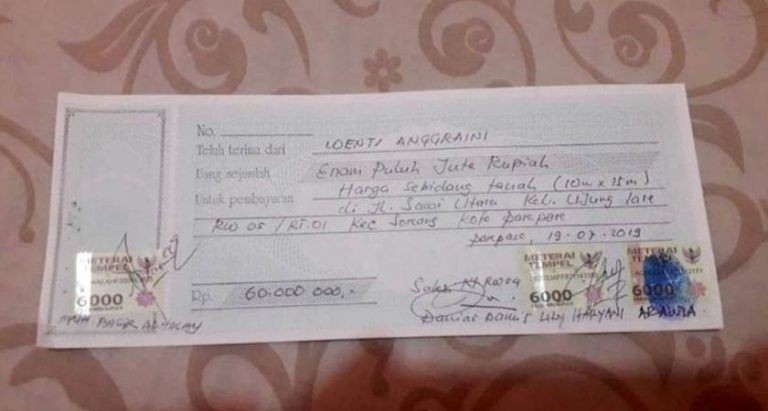 No.
Telah terima dari WENTI ANGGRAINI
Uang sejumlah Enam Puluh Juta Rupiah
Untuk pembayaran Harga Sebidang tanah (10m x 15m)
di Jl. Sawi Utara Kel. Ujung Lare
RW 05 / RT. 01 Kec Soreang Kota Parepare
Parepare, 19-07-2019
METERAI
TEMPEL
6000
METERAI
TEMPEL
6000
METERAI
TEMPEL
6000
Rp. 60.000.000,-
Saksi
Danias Damis LILY HARYANI